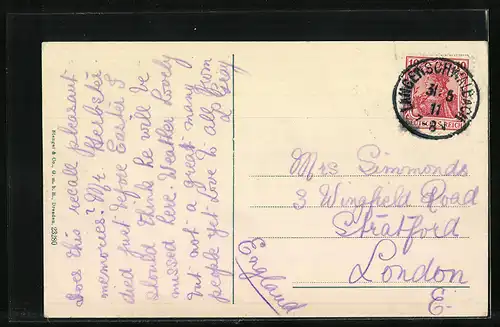 Does this recall pleasant
memories? Mr.
died just before Easter I
should think he will be
missed here. Weather lovely
but not a great many
people yet. Love to all from
L Gray
Stengel & Co., G. m. b. H., Dresden.
10 10
DEUTSCHES REICH
LANGENSCHWALBACH
31 5
11
Mrs Simmonds
3 Wingfield Road
Stratford
London
E.
England